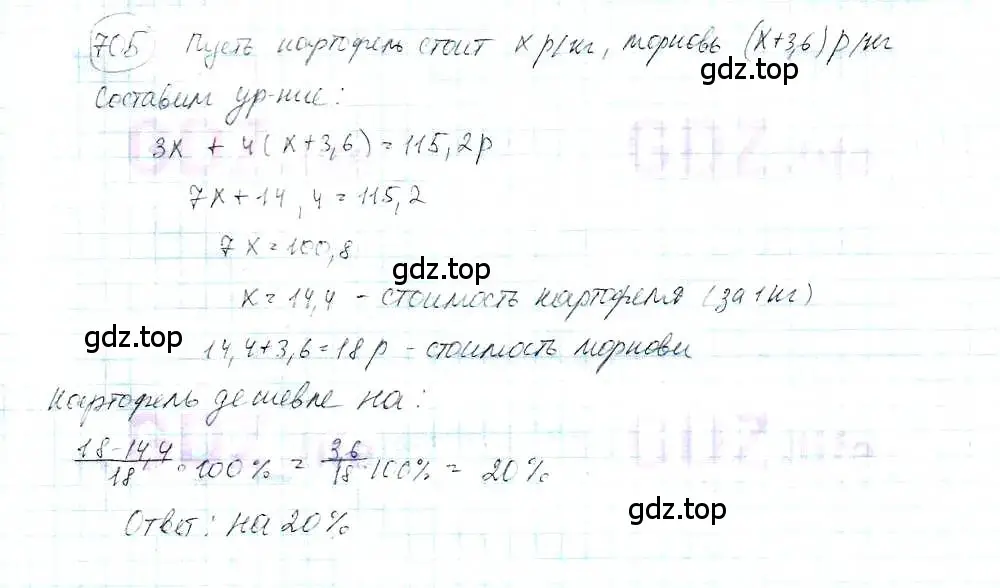 705 Пусть картофель стоит x р/кг, морковь (x+3,6) р/кг
gdz.top
Составим ур-ние:
3x + 4(x+3,6) = 115,2р
7x+14,4 = 115,2
7x = 100,8
gdz.top
x = 14,4 - стоимость картофеля (за 1 кг)
gdz.top
14,4+3,6 = 18 р - стоимость моркови
Картофель дешевле на:
18-14,4/18 · 100% = 3,6/18 · 100% = 20%
gdz.top
Ответ: на 20%